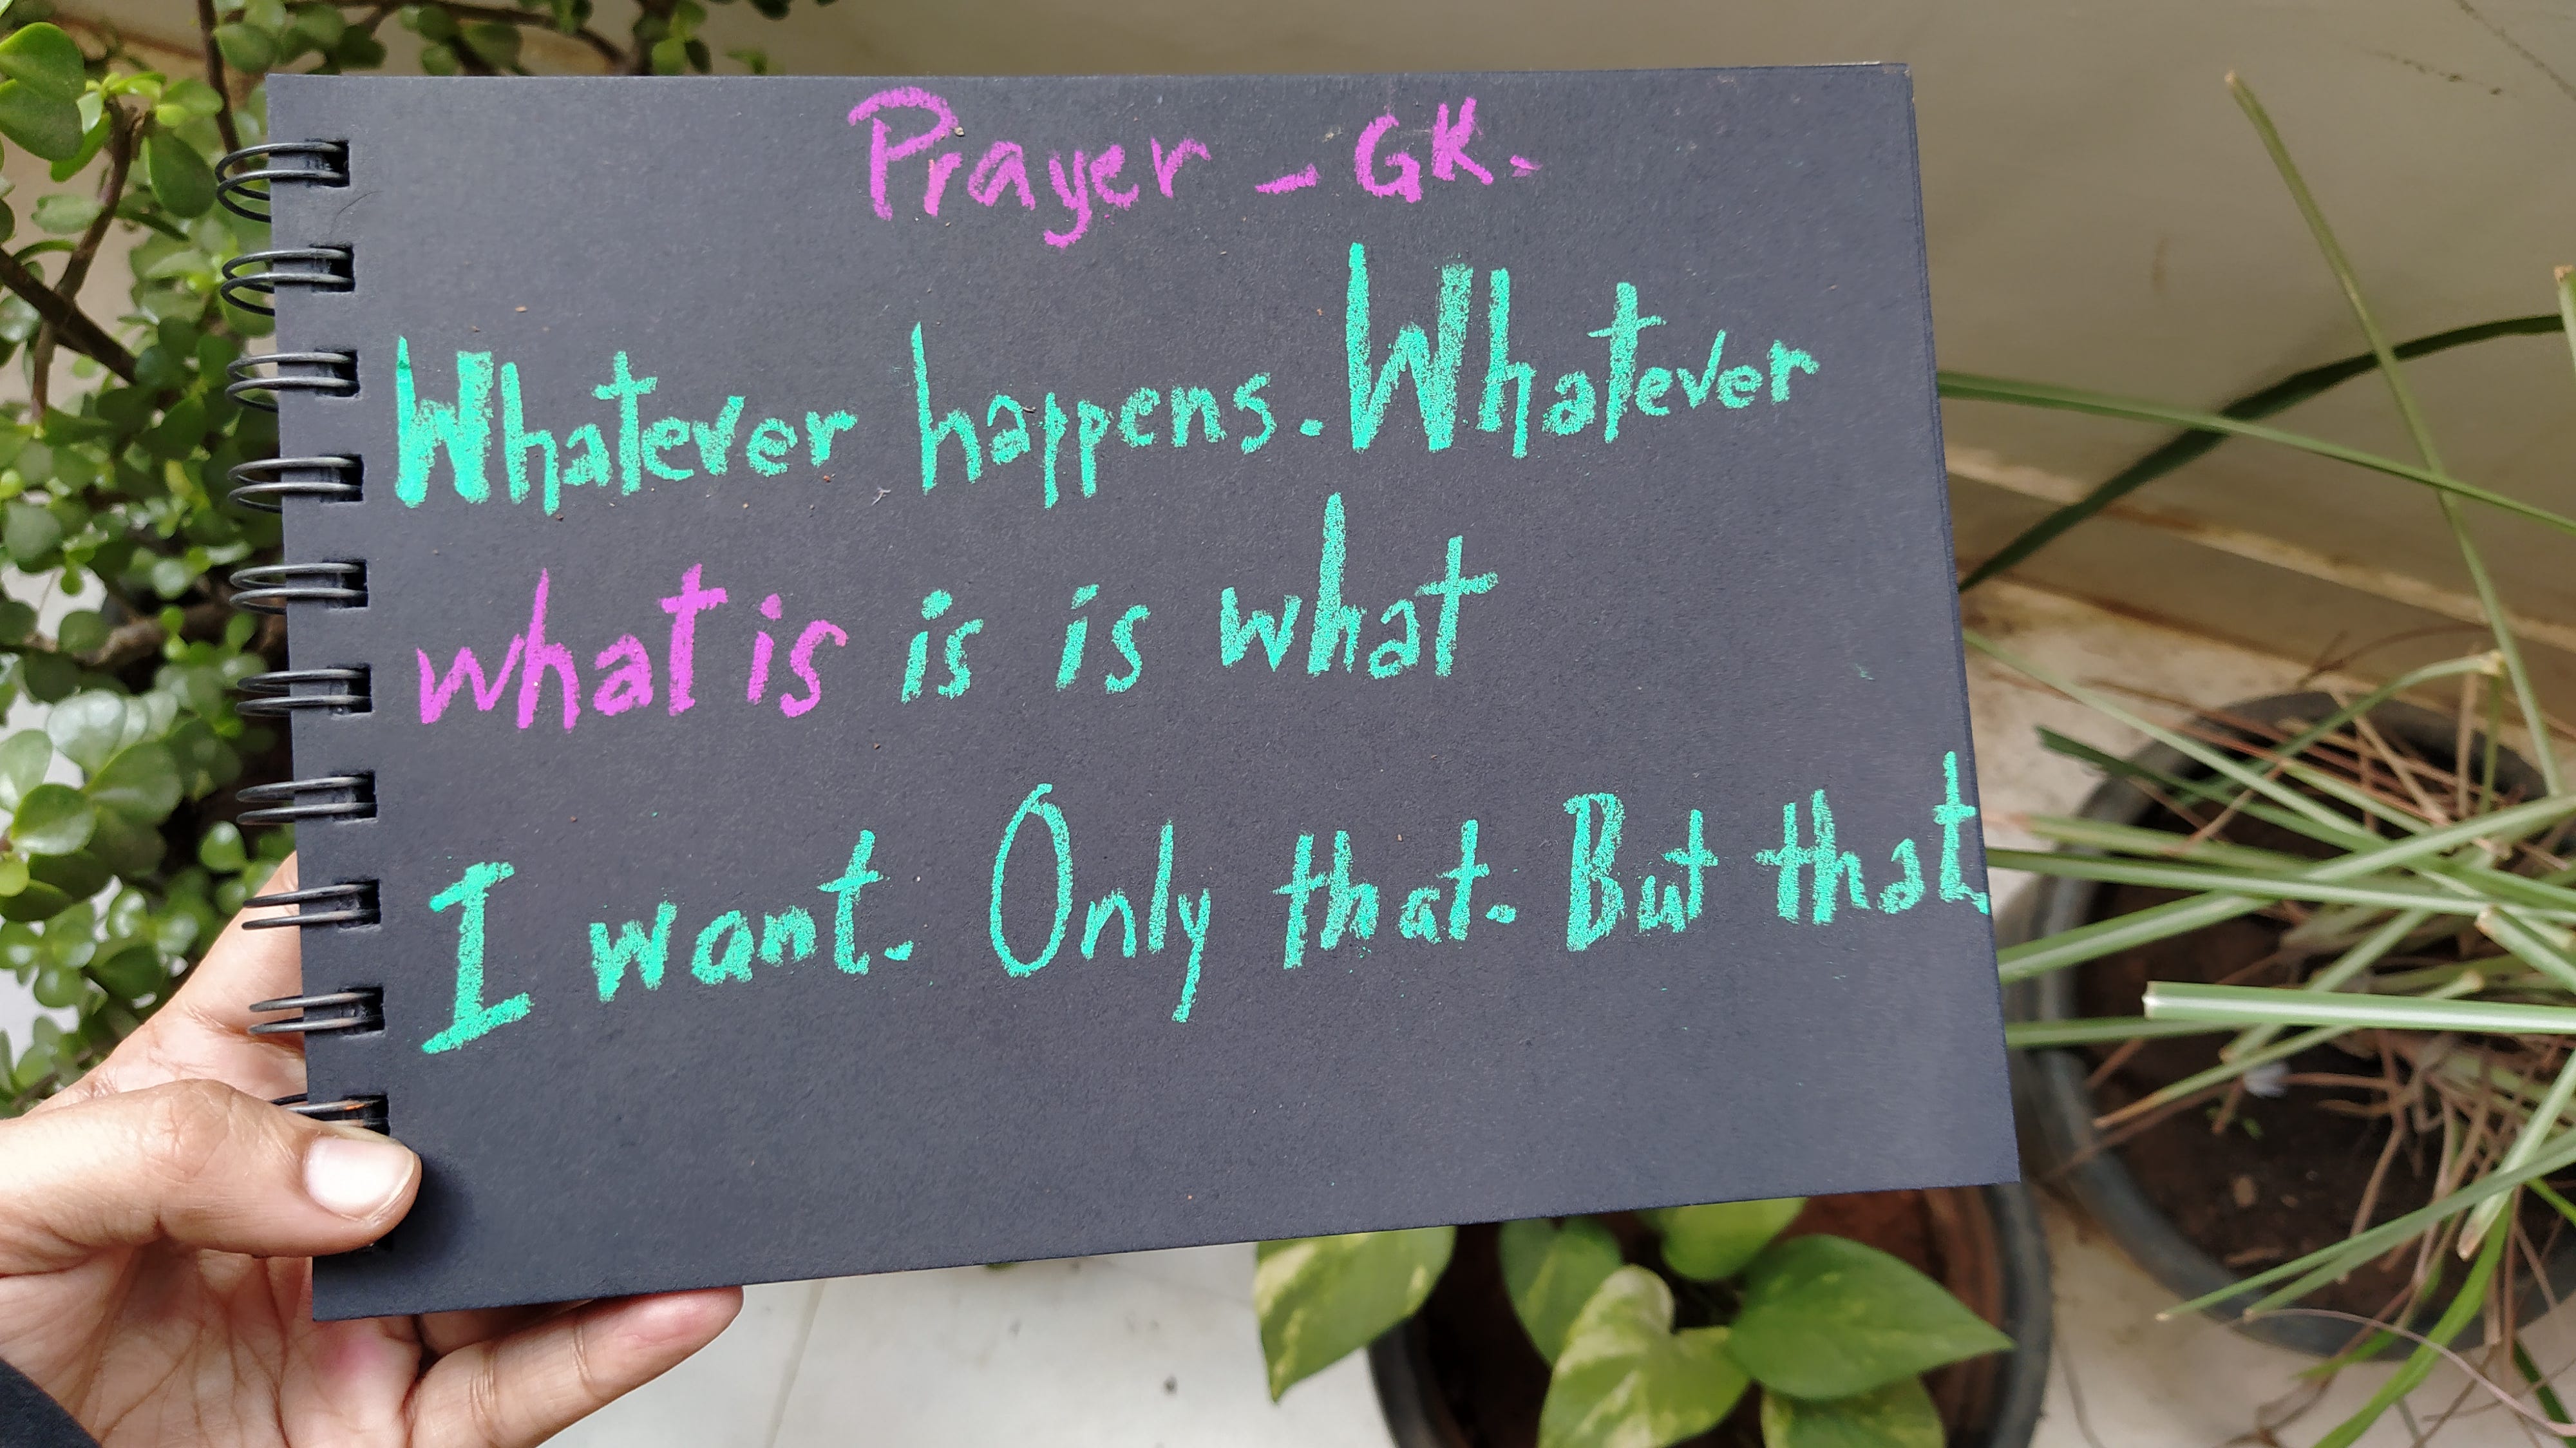 Prayer - GK.
Whatever happens. Whatever
what is is is what
I want. Only that. But that.